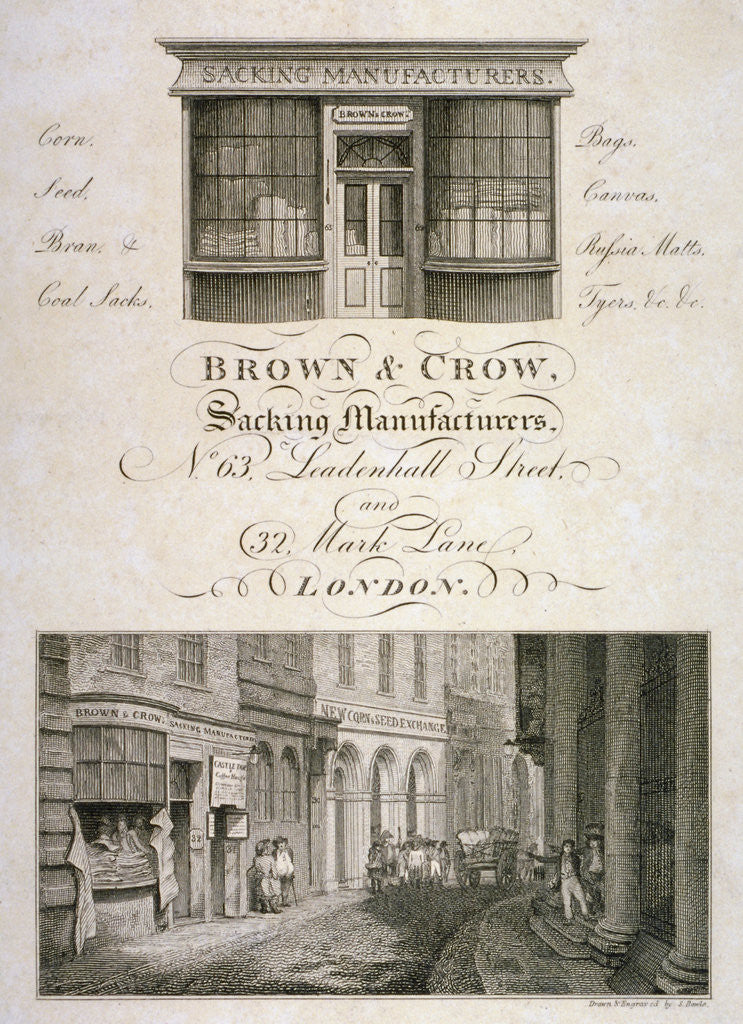 SACKING MANUFACTURERS.
BROWN & CROW.
63
63
Corn.
Seed.
Bran. &
Coal Sacks.
Bags.
Canvas.
Russia Matts.
Tyers. &c. &c.
BROWN & CROW,
Sacking Manufacturers,
No. 63, Leadenhall Street,
and
32, Mark Lane,
LONDON.
BROWN & CROW, SACKING MANUFACTURERS
NEW CORN & SEED EXCHANGE
CASTLE
Coffee House
32
Drawn & Engraved by S. Rawle.